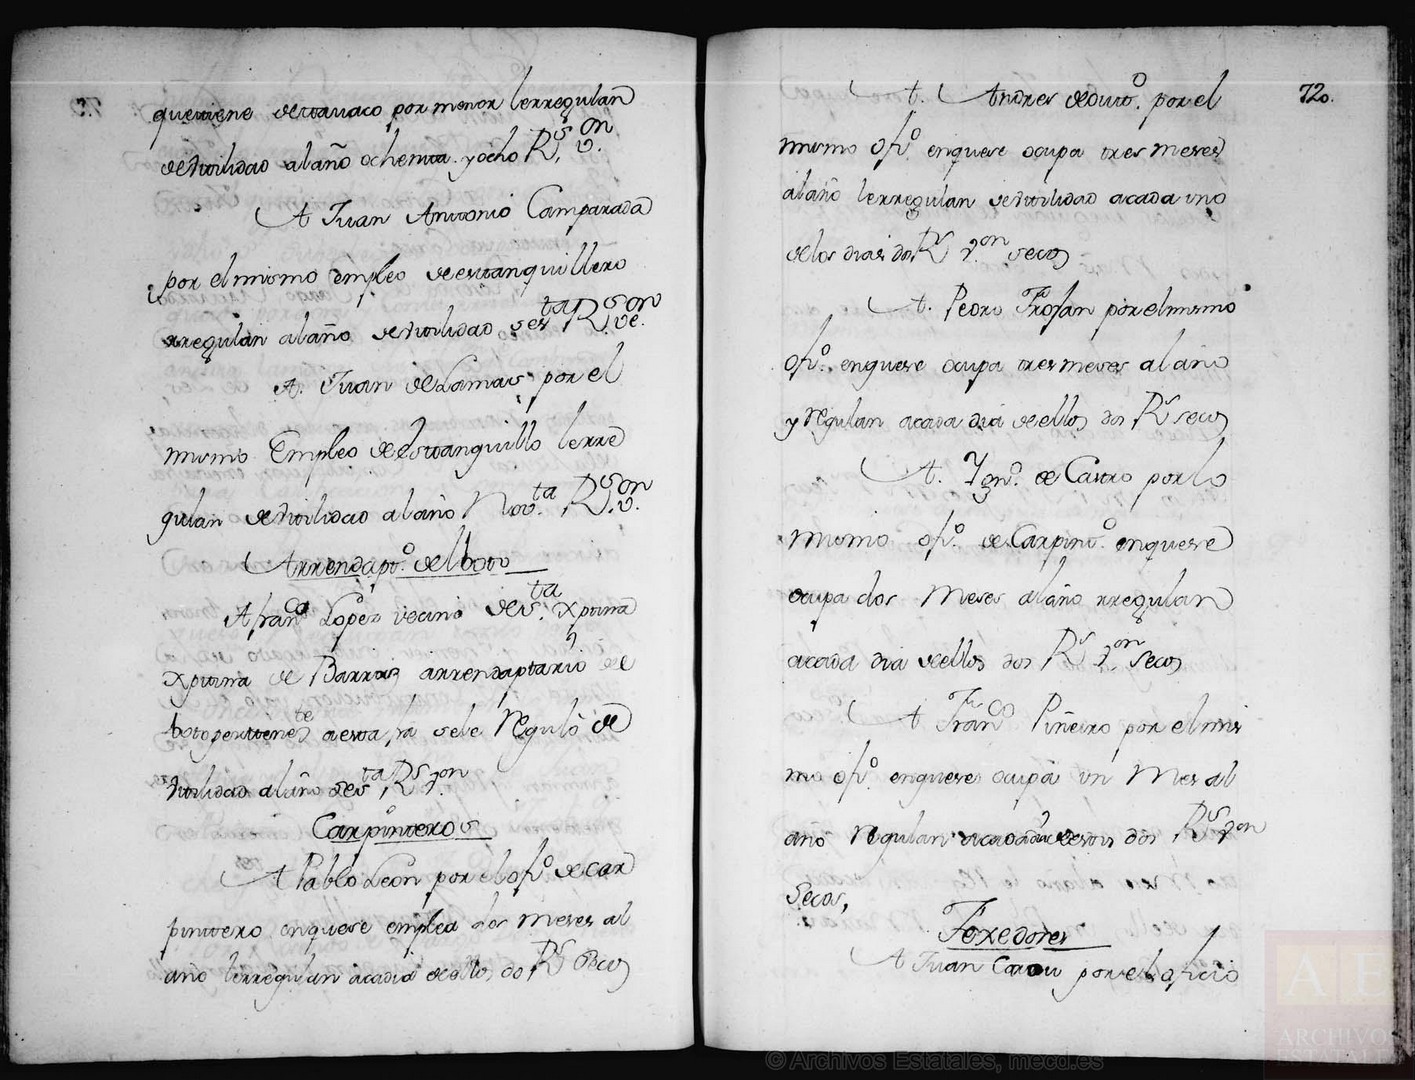 quetiene detavaco por menor lerregulan
deutilidad alaño ochenta yocho R.^s v.^on
A Juan Antonio Camparada
por elmismo empleo deestanquillero
rregulan alaño deutilidad ses^ta R.^s ve.^on
A. Juan deLamas por el
mismo Empleo deEstanquillo lerre
gulan deutilidad alaño Nov.^ta R.^s v.^on
Arrendapt.^o delboto
A fran^co Lopez vecino des.^ta Xptina
Xptina de Barros arrendaptario de
boto perttene^te aesta, sele Regulò de
Utilidad alaño ses^ta R^s v.^on
Carpinteros
A Pablo León por el of.^o decar
pintero enquese emplea dos meses al
año lerregulan acadia deellos do R^s
72.
A. Andres deduto. por el
mismo Of.^o enquese ocupa tres meses
alaño lerregulan deutilidad acada uno
delos dias dos R^s v.^on secos
A. Pedro Troſan por elmismo
Of.^o enquese ocupa tresmeses alaño
y regulan acada dia deellos dos R^s secos
A. Ygn.^o de Castro por lo
mismo of.^o deCarpint.^o enquese
ocupa dos Meses alaño rregulan
acada dia deellos dos R^s v.^on secos
A Fran^co Piñeiro por elmis
mo of.^o enquese ocupa un Mes al
año Regulan acadadia deestos dos R^s v^on
secos,
Texedores
A Juan por el oficio
© Archivos Estatales, mecd.es
AE
ARCHIVOS
ESTATALES